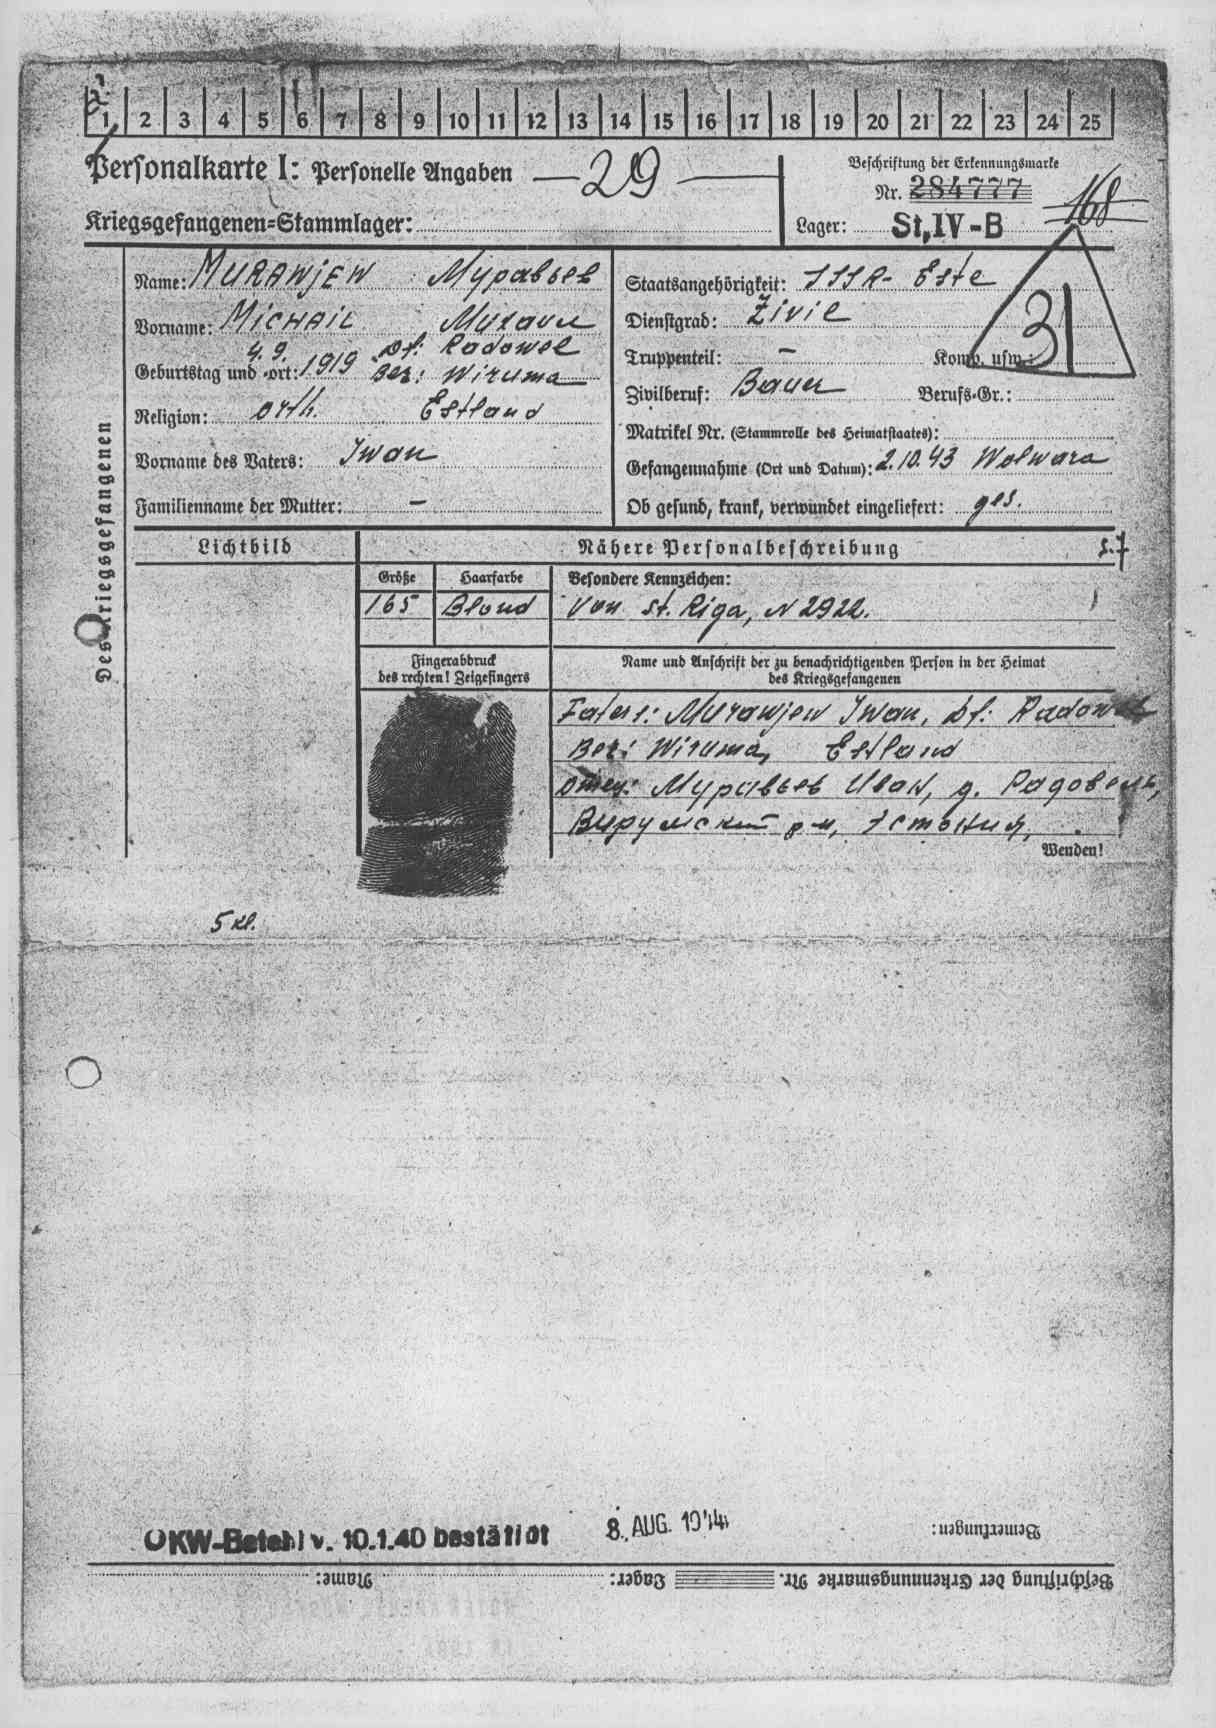 1 2 3 4 5 6 7 8 9 10 11 12 13 14 15 16 17 18 19 20 21 22 23 24 25
Personalkarte I: Personelle Angaben — 29 —
Beschriftung der Erkennungsmarke
Nr. 284777
168
Kriegsgefangenen=Stammlager:
Lager: St,IV-B
Des Kriegsgefangenen
Name: MURAWJEW Муравьев
Vorname: MICHAIL
Geburtstag und =ort: 4.9. 1919 Df: Radowel
Bez: Wiruma
Religion: orth. Estland
Vorname des Vaters: Iwan
Familienname der Mutter: –
Staatsangehörigkeit: SSSR- Este
Dienstgrad: Zivil
Truppenteil: – Komp. usw.:
31
Zivilberuf: Bauer Berufs=Gr.:
Matrikel Nr. (Stammrolle des Heimatstaates):
Gefangennahme (Ort und Datum): 2.10.43 Wolwara
Ob gesund, krank, verwundet eingeliefert: ges.
Lichtbild
Nähere Personalbeschreibung
Größe Haarfarbe Besondere Kennzeichen:
165 Blond Von St. Riga, N 2922.
Fingerabdruck
des rechten! Zeigefingers
Name und Anschrift der zu benachrichtigenden Person in der Heimat
des Kriegsgefangenen
Murawjew Iwan, Df: Radowel
Bez: Wiruma, Estland
Отец: Муравьев Иван, д. Радовель,
Вирумский р-н, Эстония,
Wenden!
5 Kl.
OKW-Befehl v. 10.1.40 bestätigt
8. AUG. 1944
Bemerkungen:
Beschriftung der Erkennungsmarke Nr. Lager: Name: